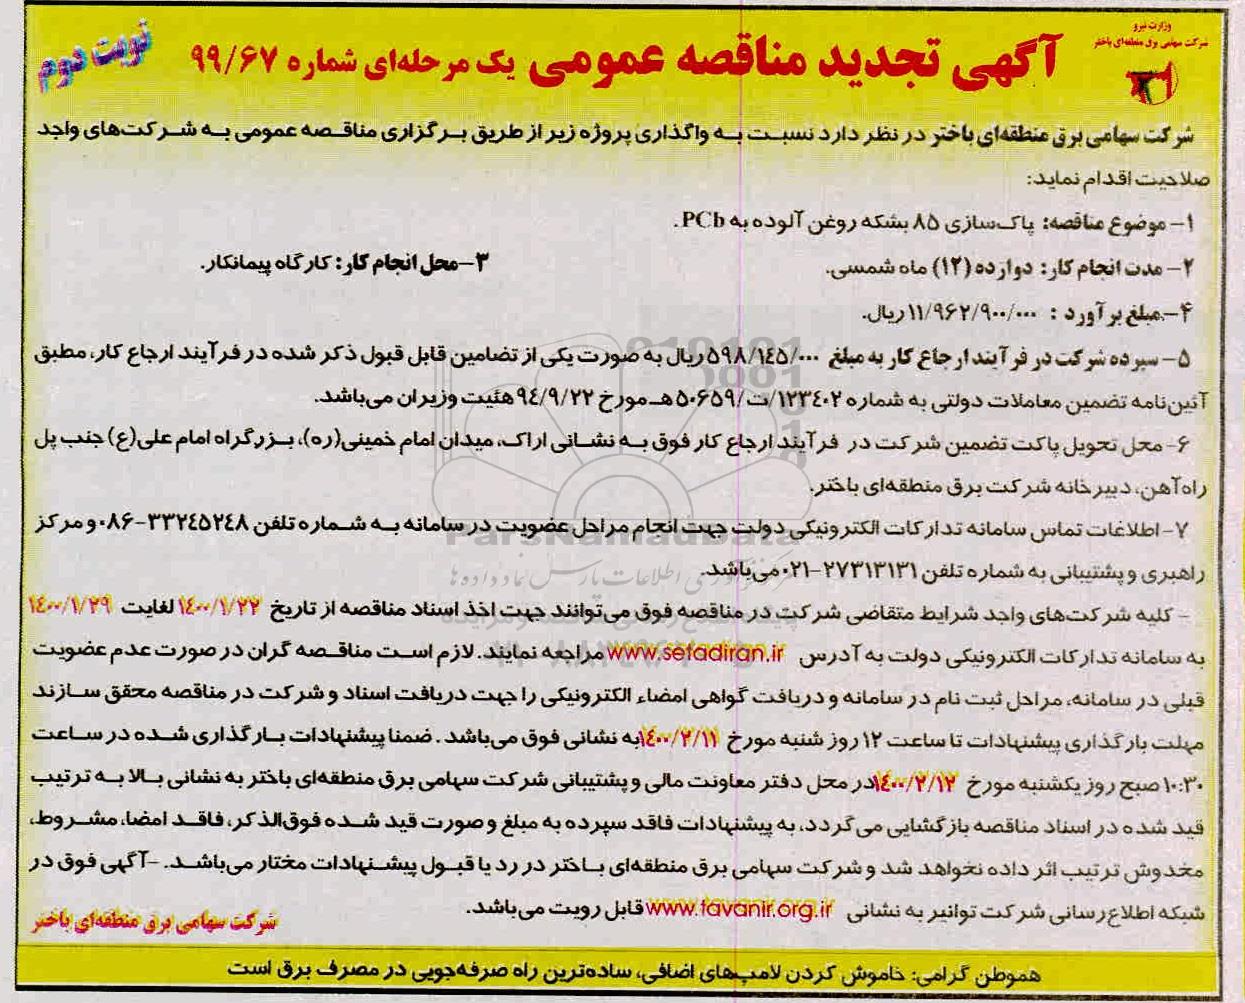 وزارت نیرو
شرکت سهامی برق منطقه‌ای باختر
نوبت دوم
آگهی تجدید مناقصه عمومی یک مرحله‌ای شماره ۹۹/۶۷
شرکت سهامی برق منطقه‌ای باختر در نظر دارد نسبت به واگذاری پروژه زیر از طریق برگزاری مناقصه عمومی به شرکت‌های واجد
صلاحیت اقدام نماید:
۱- موضوع مناقصه: پاک‌سازی ۸۵ بشکه روغن آلوده به PCb.
۲- مدت انجام کار: دوازده (۱۲) ماه شمسی. ۳-محل انجام کار: کارگاه پیمانکار.
۴-مبلغ برآورد : ۱۱/۹۶۲/۹۰۰/۰۰۰ ریال.
۵- سپرده شرکت در فرآیند ارجاع کار به مبلغ ۵۹۸/۱۴۵/۰۰۰ ریال به صورت یکی از تضامین قابل قبول ذکر شده در فرآیند ارجاع کار، مطبق
آئین‌نامه تضمین معاملات دولتی به شماره ۱۲۳۴۰۲/ت/۵۰۶۵۹هـ مورخ ۹۴/۹/۲۲ هئیت وزیران می‌باشد.
۶- محل تحویل پاکت تضمین شرکت در فرآیند ارجاع کار فوق به نشانی اراک، میدان امام خمینی(ره)، بزرگراه امام علی(ع) جنب پل
راه‌آهن، دبیرخانه شرکت برق منطقه‌ای باختر.
۷- اطلاعات تماس سامانه تدارکات الکترونیکی دولت جهت انجام مراحل عضویت در سامانه به شماره تلفن ۳۳۲۴۵۲۴۸-۰۸۶ و مرکز
راهبری و پشتیبانی به شماره تلفن ۲۷۳۱۳۱۳۱-۰۲۱ می‌باشد.
- کلیه شرکت‌های واجد شرایط متقاضی شرکت در مناقصه فوق می‌توانند جهت اخذ اسناد مناقصه از تاریخ ۱۴۰۰/۱/۲۲ لغایت ۱۴۰۰/۱/۲۹
به سامانه تدارکات الکترونیکی دولت به آدرس www.setadiran.ir مراجعه نمایند. لازم است مناقصه گران در صورت عدم عضویت
قبلی در سامانه، مراحل ثبت نام در سامانه و دریافت گواهی امضاء الکترونیکی را جهت دریافت اسناد و شرکت در مناقصه محقق سازند
مهلت بارگذاری پیشنهادات تا ساعت ۱۲ روز شنبه مورخ ۱۴۰۰/۲/۱۱ به نشانی فوق می‌باشد. ضمنا پیشنهادات بارگذاری شده در ساعت
۱۰:۳۰ صبح روز یکشنبه مورخ ۱۴۰۰/۲/۱۲ در محل دفتر معاونت مالی و پشتیبانی شرکت سهامی برق منطقه‌ای باختر به نشانی بالا به ترتیب
قید شده در اسناد مناقصه بازگشایی می‌گردد، به پیشنهادات فاقد سپرده به مبلغ و صورت قید شده فوق‌الذکر، فاقد امضا، مشروط،
مخدوش ترتیب اثر داده نخواهد شد و شرکت سهامی برق منطقه‌ای باختر در رد یا قبول پیشنهادات مختار می‌باشد. -آگهی فوق در
شبکه اطلاع‌رسانی شرکت توانیر به نشانی www.tavanir.org.ir قابل رویت می‌باشد.
شرکت سهامی برق منطقه‌ای باختر
هموطن گرامی: خاموش کردن لامپ‌های اضافی، ساده‌ترین راه صرفه‌جویی در مصرف برق است
ParsNamadData